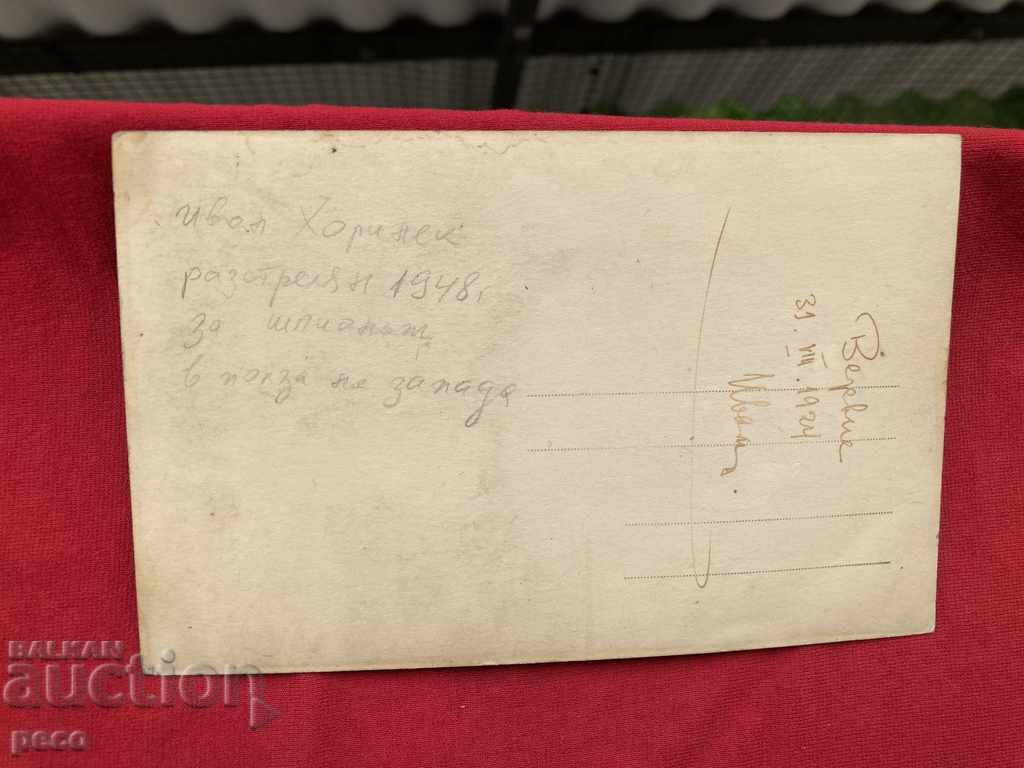 Иван Хоринек
разстрелян 1948 г.
за шпионаж
в полза на запада
31. VIII. 1924
Иванъ.
BALKAN
auction
peco